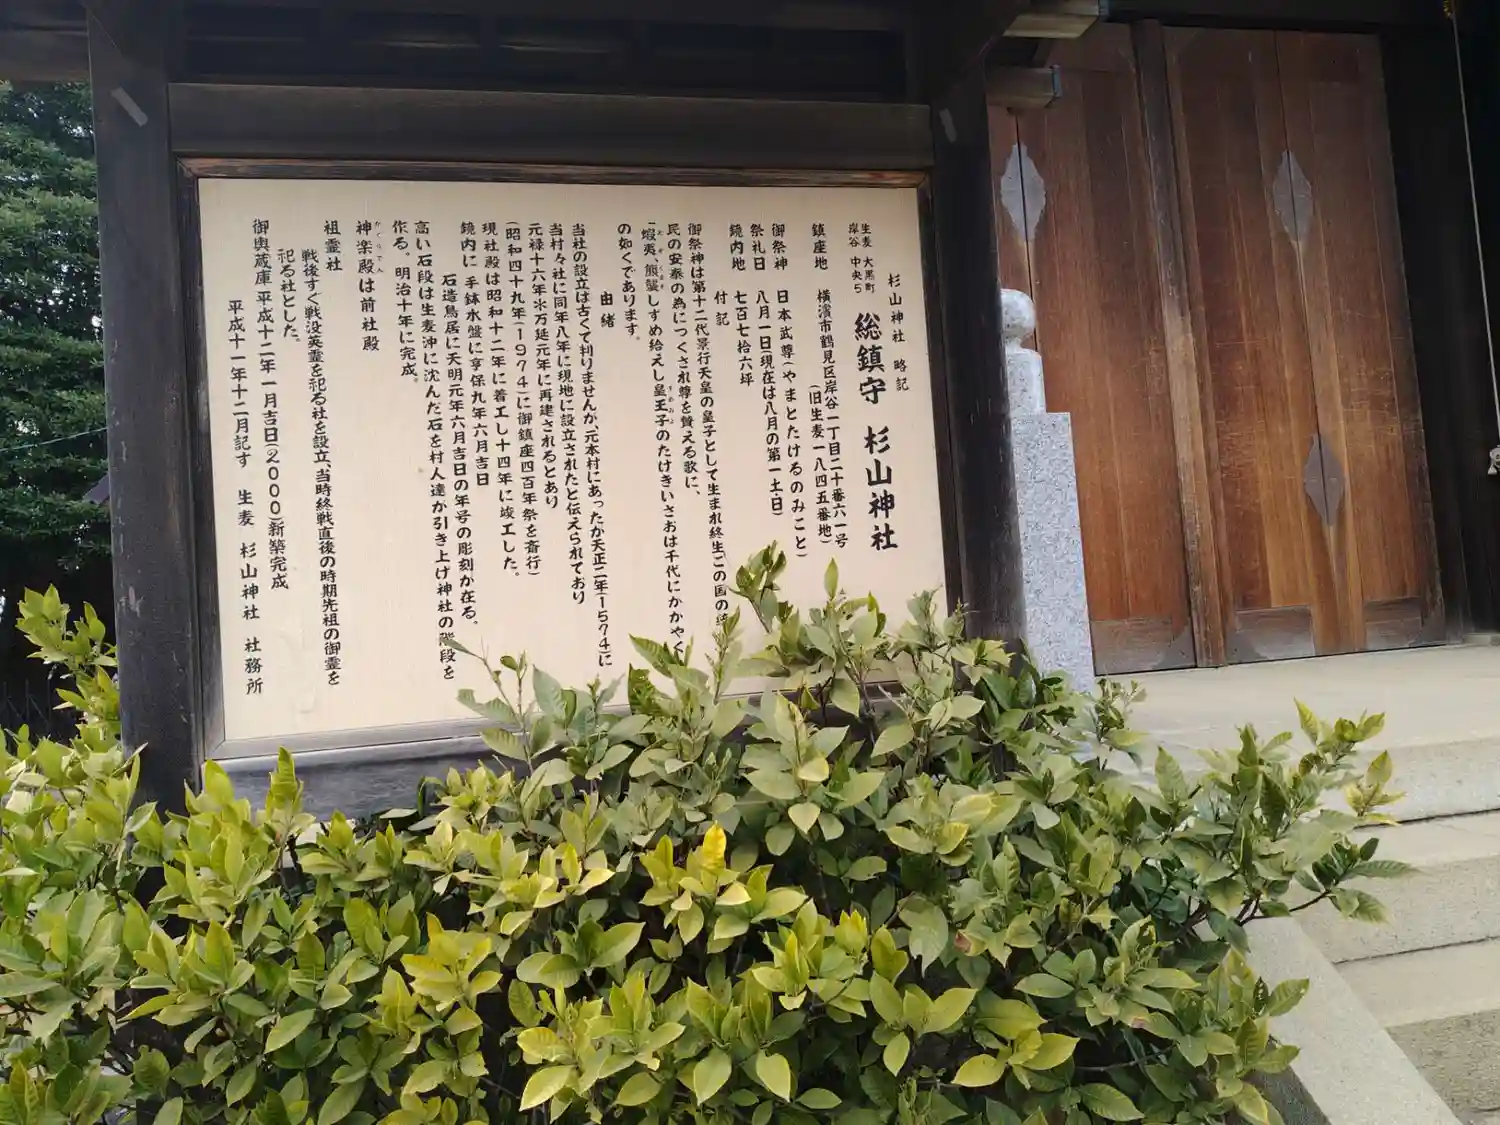 杉山神社 略記
生麦 大黒町
岸谷 中央5
総鎮守 杉山神社
鎮座地 横濱市鶴見区岸谷一丁目二十番六一号
(旧生麦一八四五番地)
御祭神 日本武尊(やまとたけるのみこと)
祭礼日 八月一日(現在は八月の第一土日)
鏡内地 七百七拾六坪
付記
御祭神は第十二代景行天皇の皇子として生まれ終生この国の
民の安泰の為につくされ尊を賛える歌に、
「蝦夷、熊襲しずめ給えし皇王子のたけきいさおは千代にかがやく
の如くであります。
由緒
当社の設立は古くて判りませんが、元本村にあったが天正二年(1574)に
当村々社に同年八年に現地に設立されたと伝えられており
元禄十六年※万延元年に再建されるとあり
(昭和四十九年(1974)に御鎮座四百年祭を斎行)
現社殿は昭和十二年に着工し十四年に竣工した。
鏡内に 手鉢水盤に亨保九年六月吉日
石造鳥居に天明元年六月吉日の年号の彫刻が在る。
高い石段は生麦沖に沈んだ石を村人達が引き上げ神社の階段を
作る。明治十年に完成。
神楽殿は前社殿
祖霊社
戦後すぐ戦没英霊を祀る社を設立、当時終戦直後の時期先祖の御霊を
祀る社とした。
御輿蔵庫 平成十二年一月吉日(2000)新築完成
平成十一年十二月記す 生麦 杉山神社 社務所